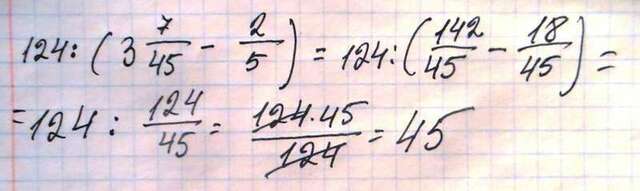 124 : (3 7/45 - 2/5) = 124 : (142/45 - 18/45) =
= 124 : 124/45 = 124 · 45/124 = 45